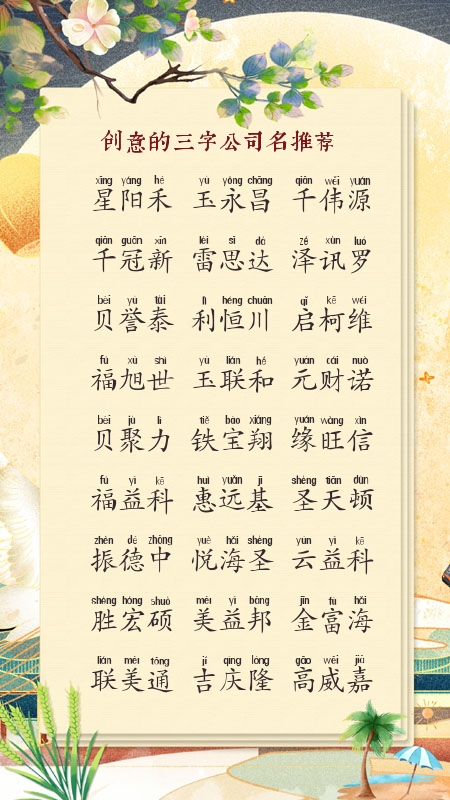 创意的三字公司名推荐
xīng yáng hé yù yǒng chāng qiān wěi yuán
星阳禾 玉永昌 千伟源
qiān guān xīn léi sī dá zé xùn luó
千冠新 雷思达 泽讯罗
bèi yù tài lì héng chuān qǐ kē wéi
贝誉泰 利恒川 启柯维
fú xù shì yù lián hé yuán cái nuò
福旭世 玉联和 元财诺
bèi jù lì tiě bǎo xiáng yuán wàng xìn
贝聚力 铁宝翔 缘旺信
fú yì kē huì yuǎn jī shèng tiān dùn
福益科 惠远基 圣天顿
zhèn dé zhōng yuè hǎi shèng yún yì kē
振德中 悦海圣 云益科
shèng hóng shuò měi yì bāng jīn fù hǎi
胜宏硕 美益邦 金富海
lián měi tōng jí qìng lóng gāo wēi jiā
联美通 吉庆隆 高威嘉